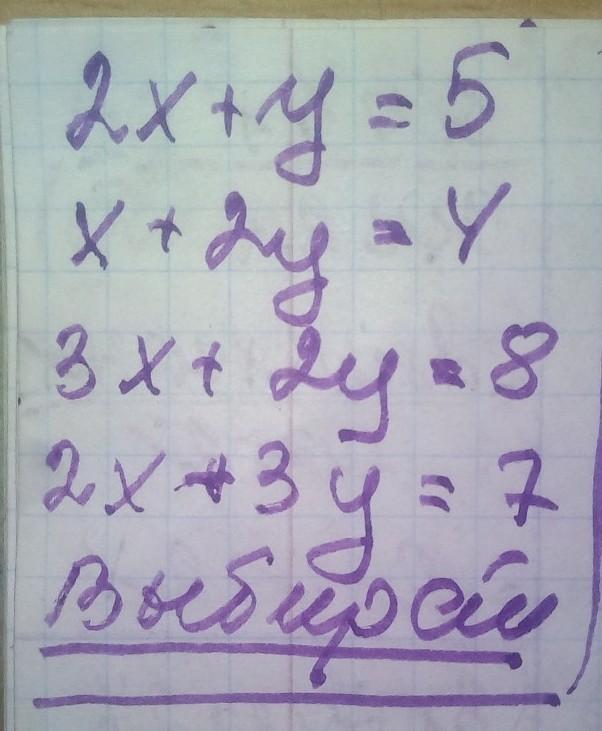 2x+y=5
x+2y=4
3x+2y=8
2x+3y=7
Выбирай